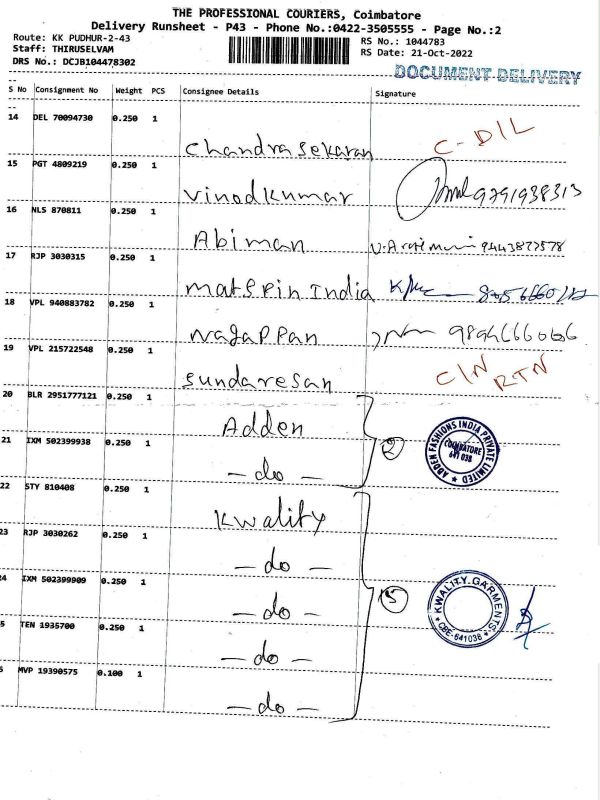 THE PROFESSIONAL COURIERS, Coimbatore
Delivery Runsheet - P43 - Phone No.:0422-3505555 - Page No.:2
Route: KK PUDHUR-2-43
RS No.: 1044783
Staff: THIRUSELVAM
RS Date: 21-Oct-2022
DRS No.: DCJB104478302
DOCUMENT DELIVERY
S No Consignment No Weight PCS Consignee Details Signature
14 DEL 70094730 0.250 1
Chandrasekaran C-D/L
15 PGT 4809219 0.250 1
Vinodkumar 9791938313
16 NLS 870811 0.250 1
Abiman 9443877578
17 RJP 3030315 0.250 1
Matspin India
18 VPL 940883782 0.250 1
Nagappan
19 VPL 215722548 0.250 1
Sundaresan C/N RTN
20 BLR 2951777121 0.250 1
Adden
21 IXM 502399938 0.250 1
- do - 2
ADDEN FASHIONS INDIA PRIVATE LIMITED
COIMBATORE
641 038
22 STY 810408 0.250 1
Kwality
23 RJP 3030262 0.250 1
- do -
24 IXM 502399909 0.250 1
- do - 5
KWALITY GARMENTS
CBE-641038
5 TEN 1935700 0.250 1
- do -
6 MVP 19390575 0.100 1
- do -